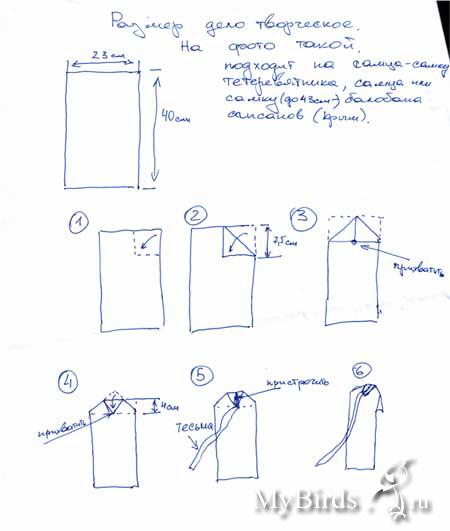 Размер дело творческое.
На фото такой.
подходит на самца-самку
тетеревятника, самца или
самку (до 43см) балобана
сапсанов (крым).
23см
40см
1
2
3
7,5см
прихватить
4
5
6
4см
прихватить
пристрочить
тесьма
MyBirds.ru